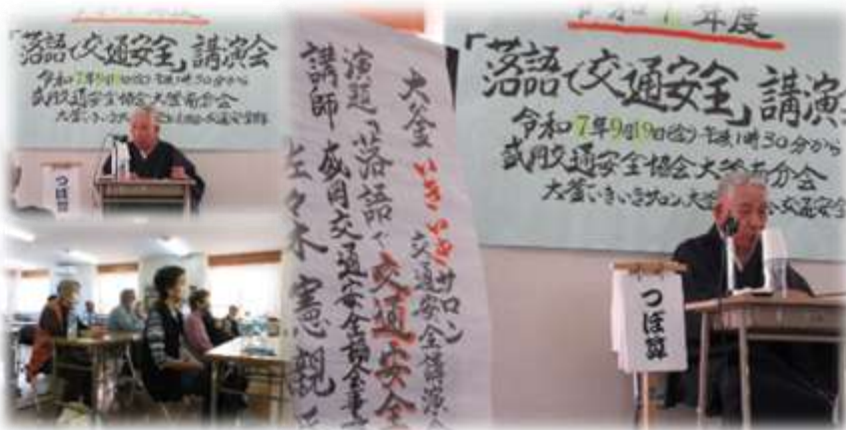 「落語で交通安全」講演会
令和7年9月19日(金)午後1時30分から
盛岡交通安全協会大釜南分会
つぼ算
大釜いきいきサロン
交通安全講演会
演題「落語で交通安全
講師 盛岡交通安全協会
佐々木憲観
年度
「落語で交通安全」講演
令和7年9月19日(金)午後1時30分から
盛岡交通安全協会大釜南分会
大釜いきいきサロン大釜
交通安全
つぼ算